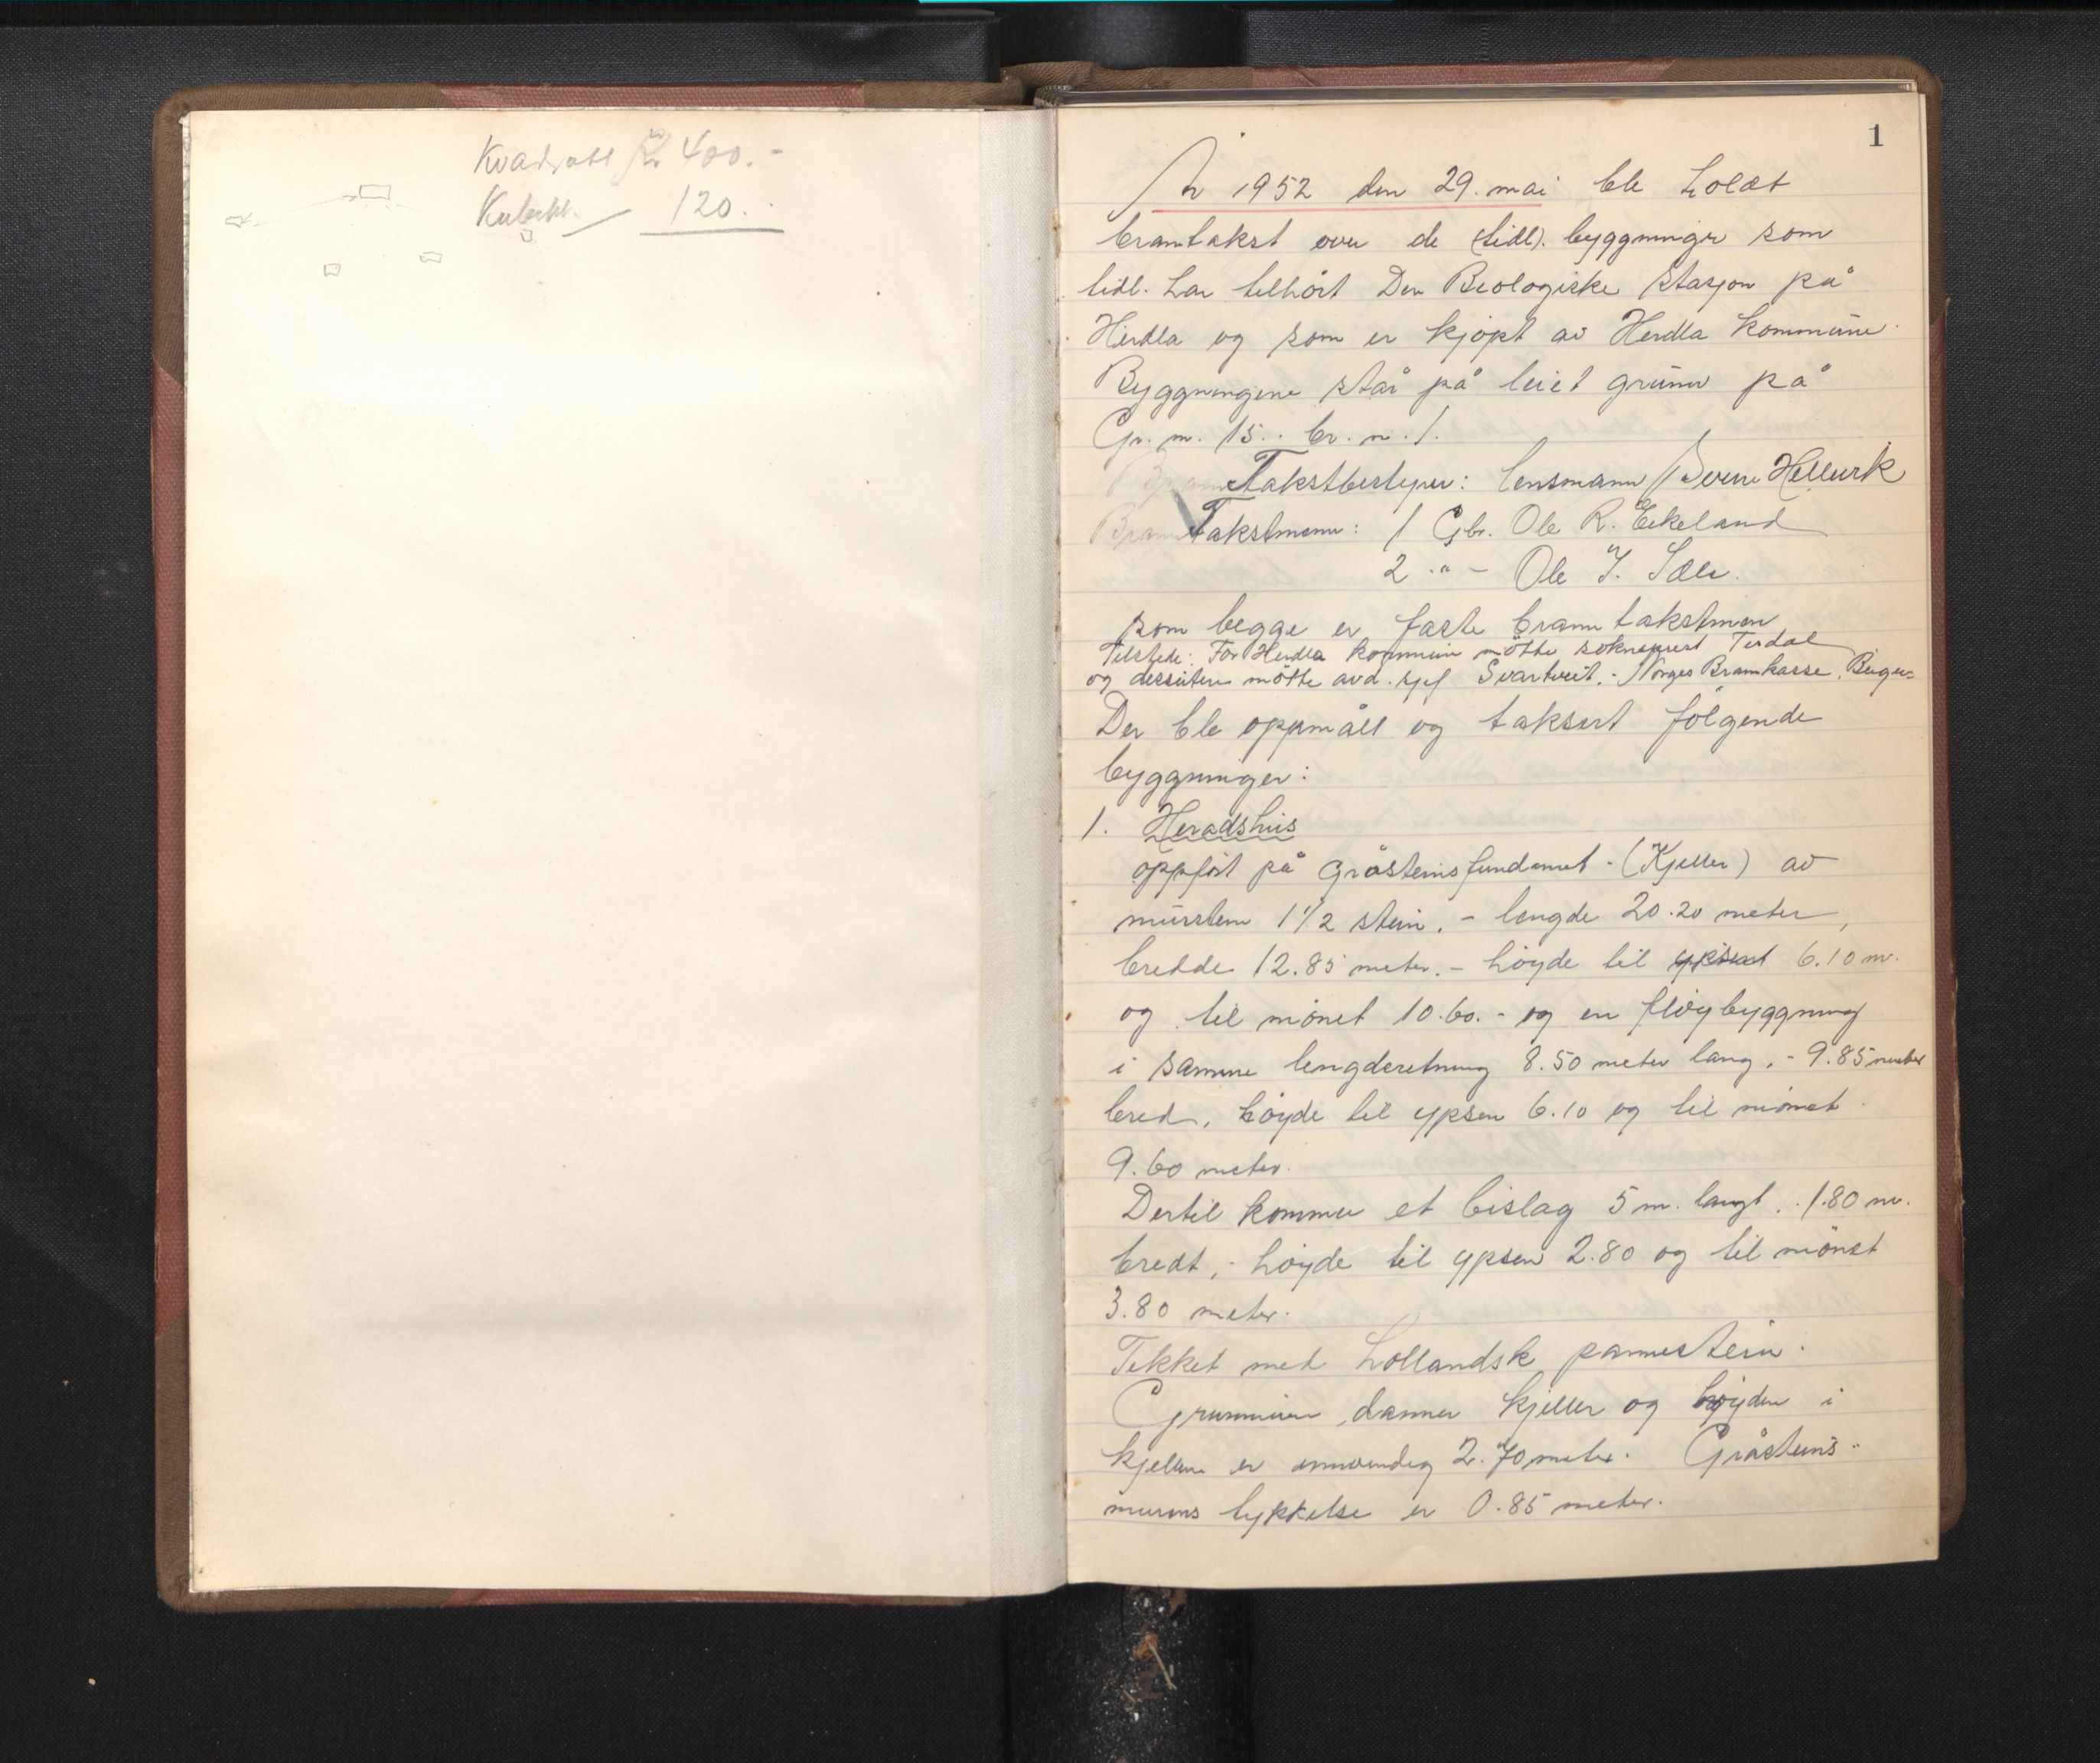 Kvadratt Kr 400.-
Kubikk. 120.-
1
År 1952 den 29. mai ble holdt
branntakst over de (tidl). byggninger som
tidl. har tilhört Den Biologiske stasjon på
Herdla og som er kjöpt av Herdla kommune.
Byggningene står på leiet grunn på
Gr. nr. 15.. br. nr. 1.
Takstbestyrer: lensmann Sverre Hellevik
Brann Takstmenn: 1 Gbr. Ole R. Eikeland
2 -"- Ole J. Sæle.
som begge er faste brann takstmenn
Tilstede: For Herdla kommune mötte sokneprest Terdal
og dessuten mötte avd. sjef Svartveit. - Norges Brannkasse, Bergen
Der ble oppmålt og taksert fölgende
byggninger:
1. Heradshus
oppfört på Gråsteinsfundamet - (Kjeller) av
mursten 1 1/2 stein. - lengde 20.20 meter,
bredde 12.85 meter. - höyde til 6.10 m.
og til mönet 10.60. - og en flöybyggning
i samme lengderetning 8.50 meter lang. - 9.85 meter
bred, höyde til ypsen 6.10 og til mönet
9.60 meter.
Dertil kommer et bislag 5 m. langt. 1.80 m.
bredt, - höyde til ypsen 2.80 og til mönet
3.80 meter.
Tekket med hollandsk pannestein.
Grunnmuren danner kjeller og höyden i
kjelleren er innvendig 2.70 meter. Gråsteins-
murens tykkelse er 0.85 meter.